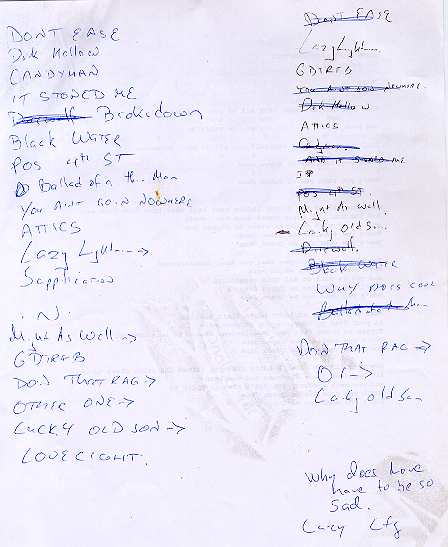 DONT EASE
Dirk Hollow
CANDYMAN
IT STONED ME
Brokedown
Black WATER
POS 4th ST
Ballad of a thin Man
YOU AINT GOIN NOWHERE
ATTICS
Lazy Light→
Sapplication
.N.
Might As Well →
GDTRFB
DOIN THAT RAG →
OTHER ONE →
LUCKY OLD SON →
LOVELIGHT.
DONT EASE
Lazy Light
GDTRFB
YOU AINT GOIN NOWHERE
Dirk Hollow
ATTICS
AND IT STONED ME
POS 4th ST
Might As Well.
Lucky Old Son
Black WATER
WHY DOES LOVE
DOIN THAT RAG →
O1→
Lucky old Son
Why does love
have to be so
sad.
Lazy Ltg